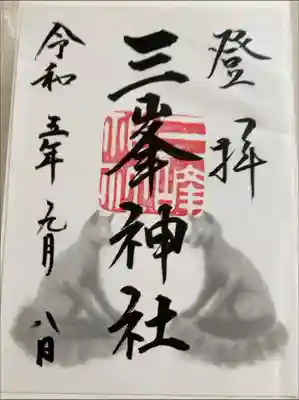 登拝
三峯神社
令和五年九月八日